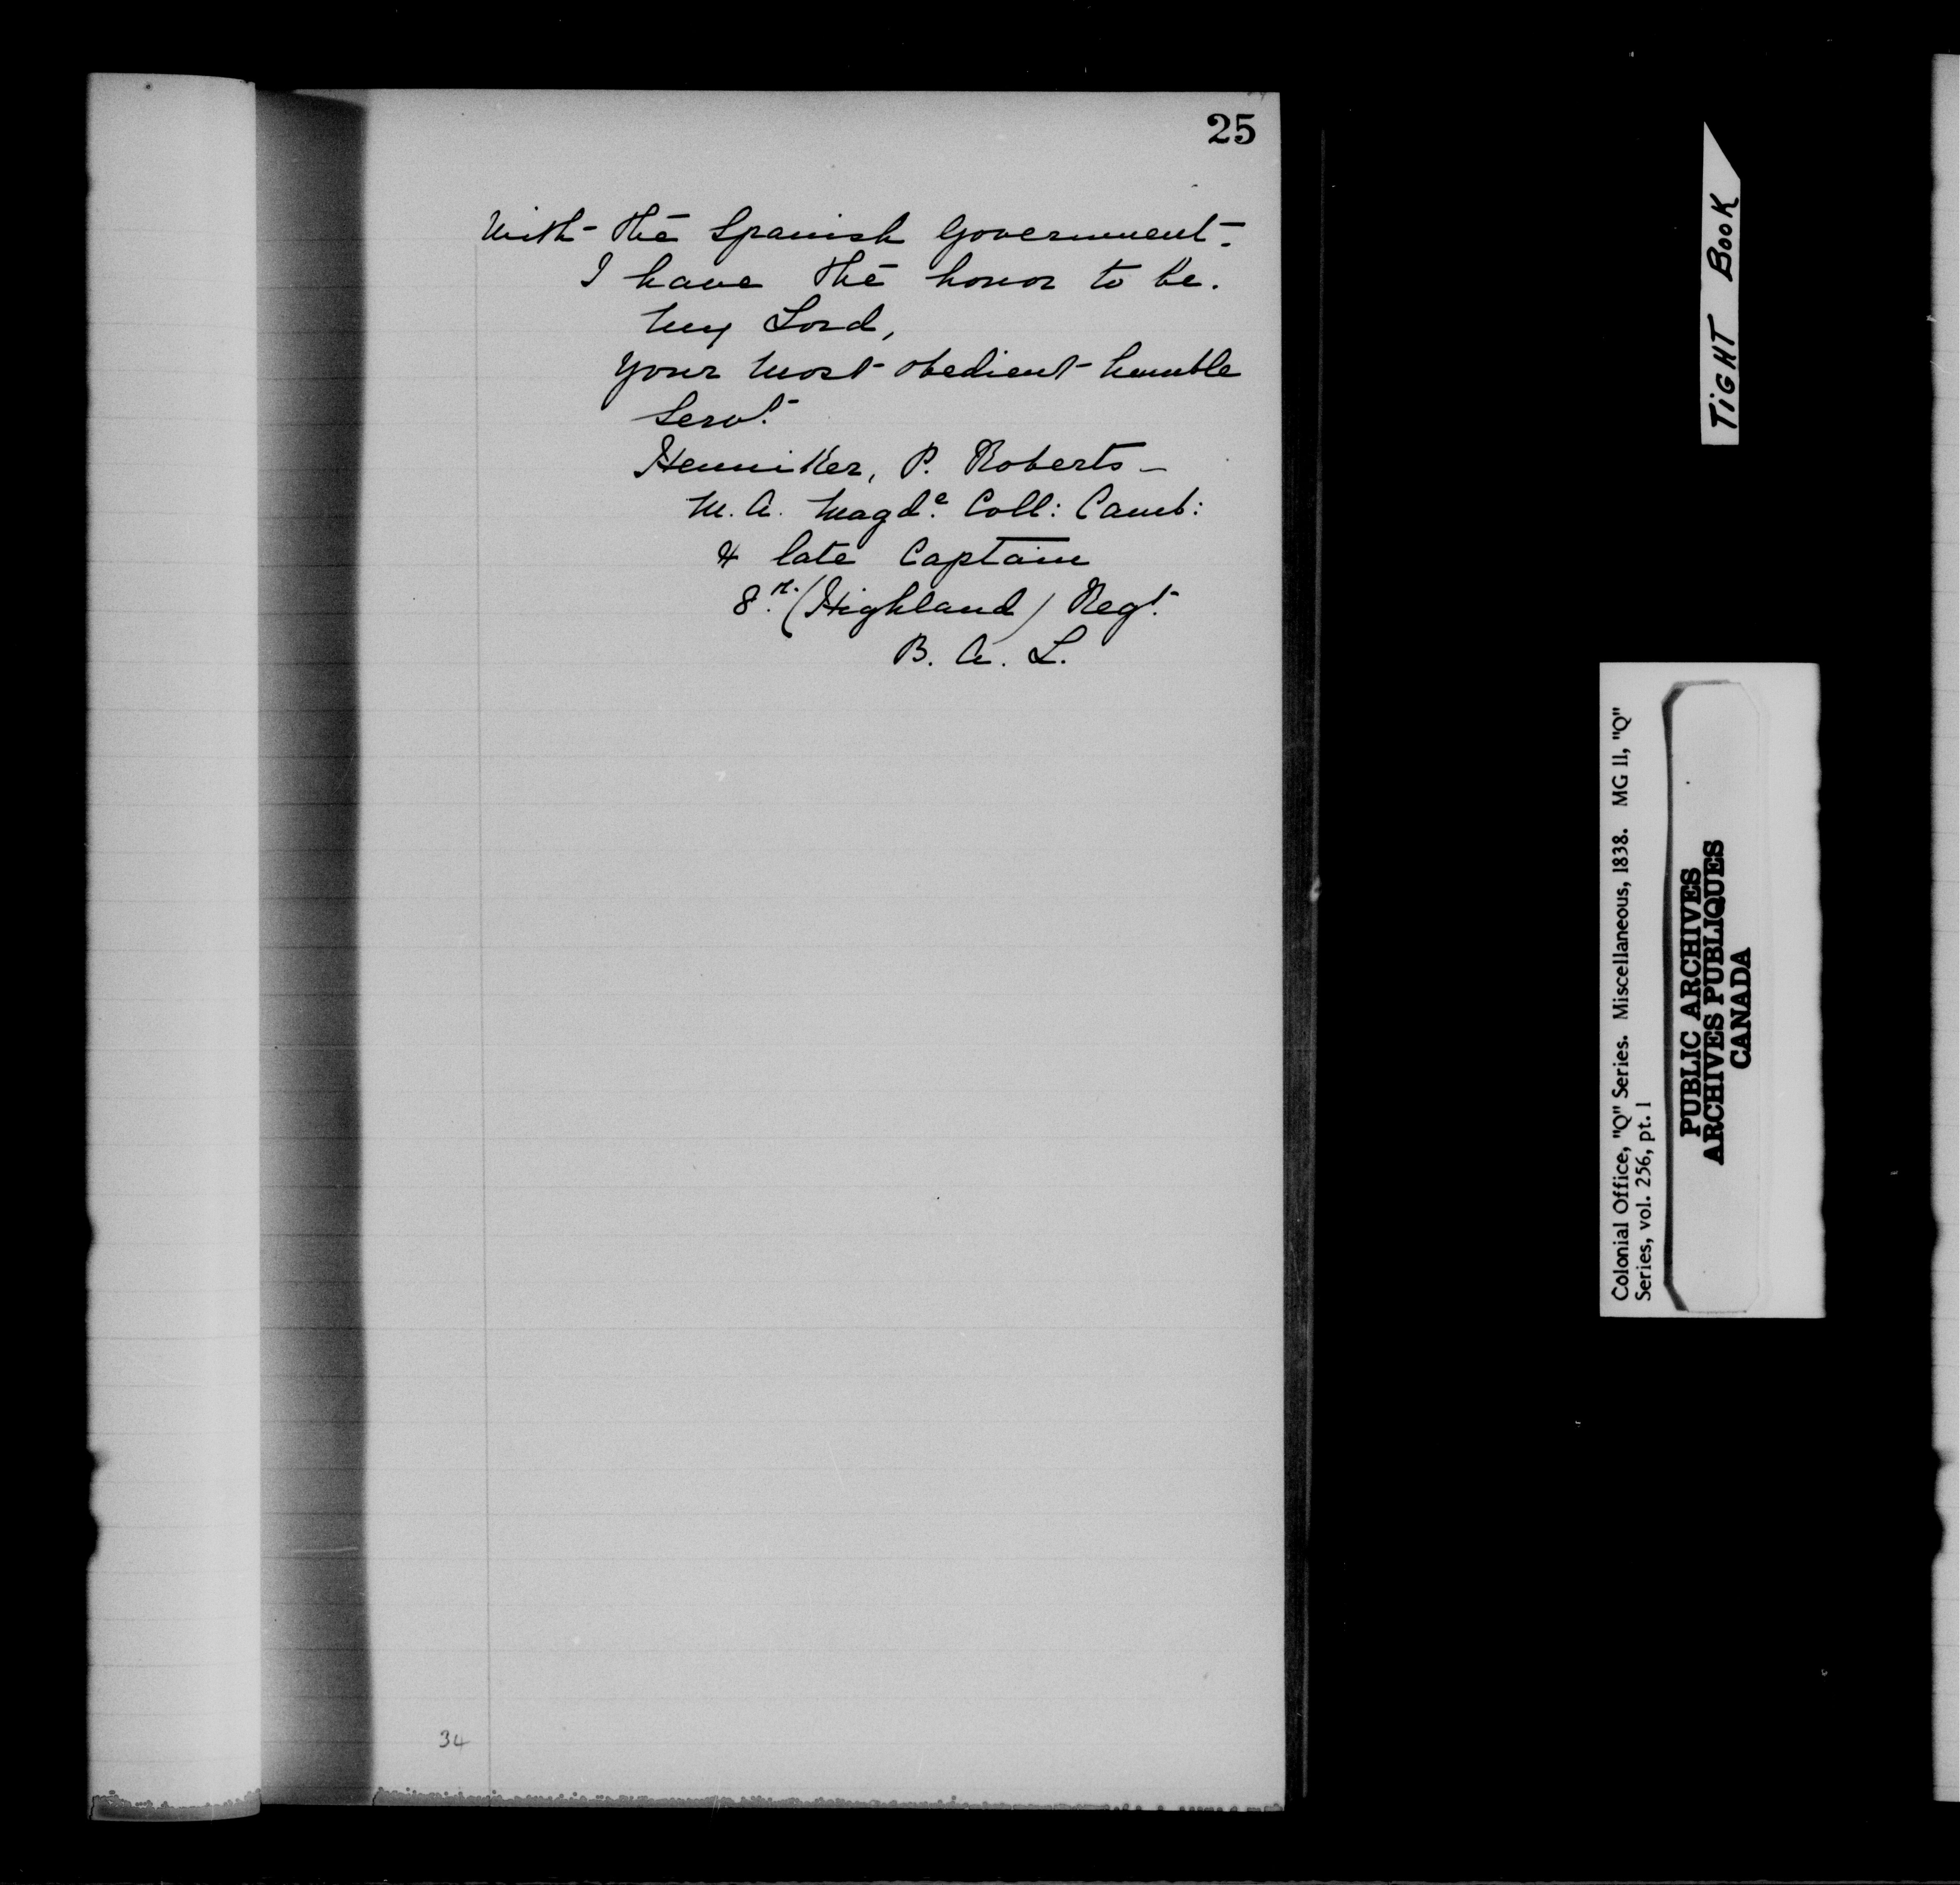 25
With the Spanish Government.
I have the honor to be.
My Lord,
Your most obedient humble
Servt.
Henniker, P. Roberts —
M. A. Magde. Coll: Camb:
& late Captain
8th. (Highland) Regt.
B. A. L.
34
TIGHT BOOK
Colonial Office, "Q" Series. Miscellaneous, 1838. MG 11, "Q"
Series, vol. 256, pt. 1
PUBLIC ARCHIVES
ARCHIVES PUBLIQUES
CANADA